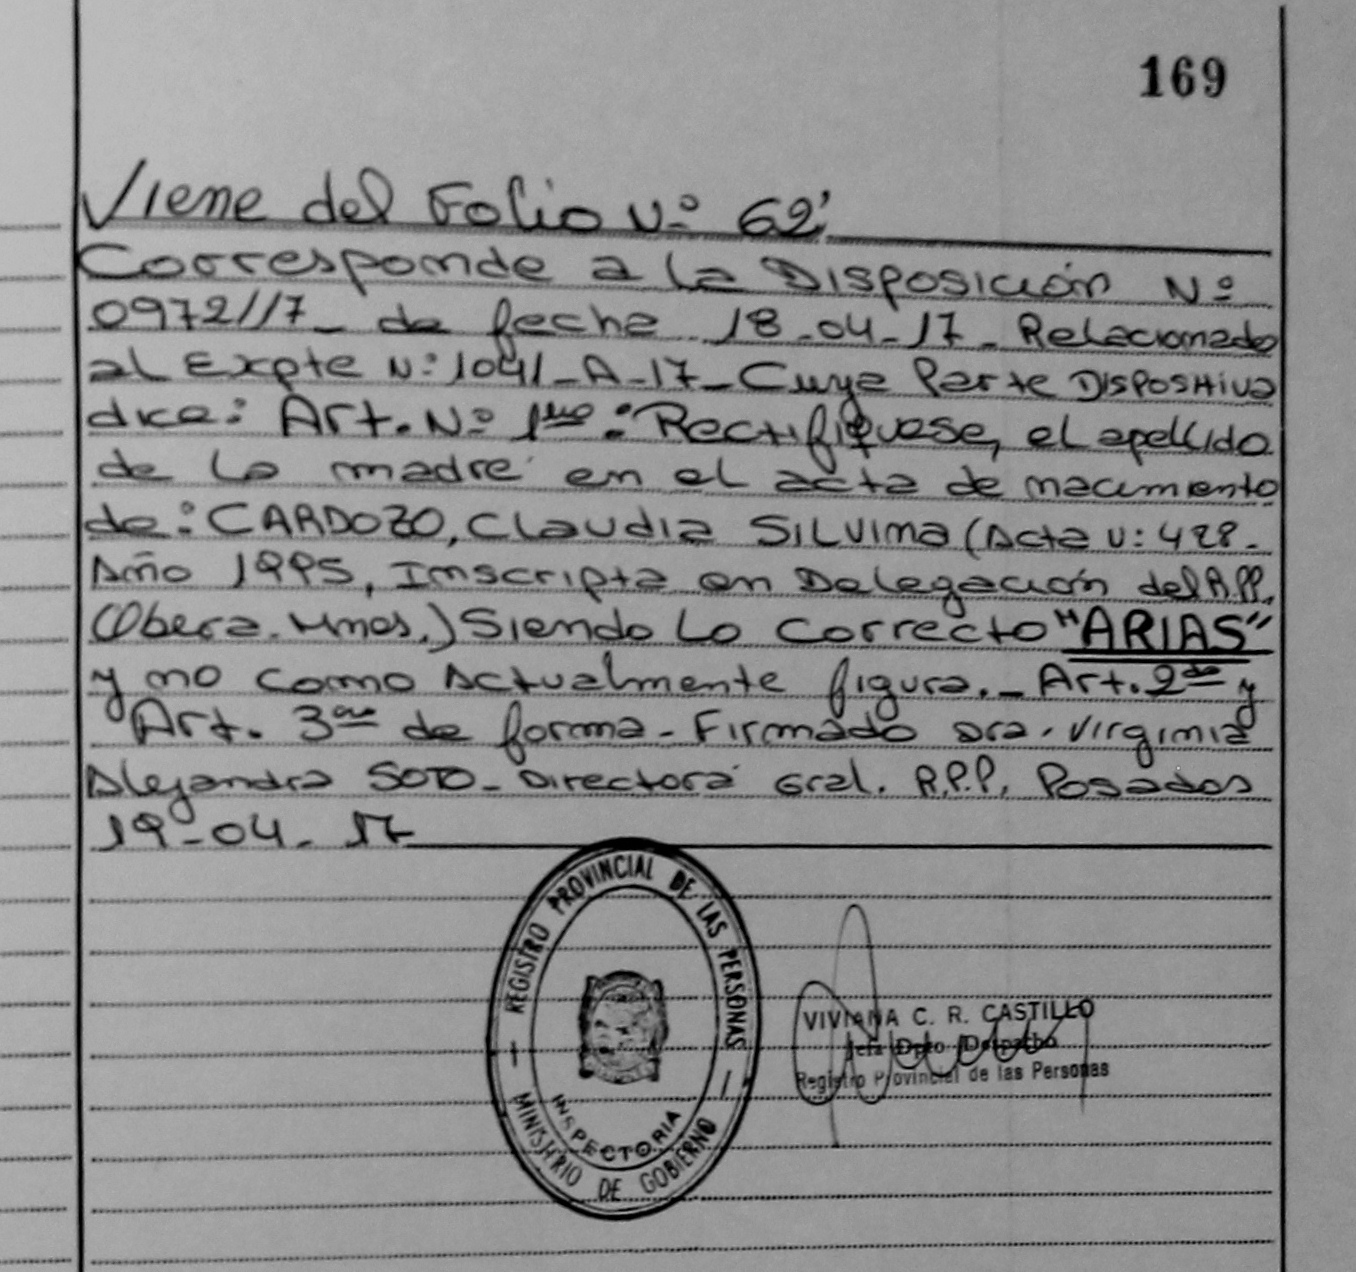 169
Viene del Folio Nº 62'
Corresponde a la Disposición Nº
0972//17_ de fecha 18-04-17_ Relacionado
al Expte Nº 1041_A_17_ Cuya Parte Dispositiva
dice: Art. Nº 1ero: Rectifíquese, el apellido
de la madre en el acta de nacimiento
de: CARDOZO, Claudia SILVINA (Acta Nº: 428-
Año 1995, Inscripta en Delegación del R.P.P.
(Obera. Mnes.) Siendo Lo Correcto "ARIAS"
y no como Actualmente figura._ Art. 2do y
Art. 3ero de forma- Firmado Dra. Virginia
Alejandra SOTO- Directora Gral. R.P.P. Posadas
19-04-17
REGISTRO PROVINCIAL DE LAS PERSONAS
INSPECTORIA
MINISTERIO DE GOBIERNO
VIVIANA C. R. CASTILLO
Jefa Dpto Despacho
Registro Provincial de las Personas